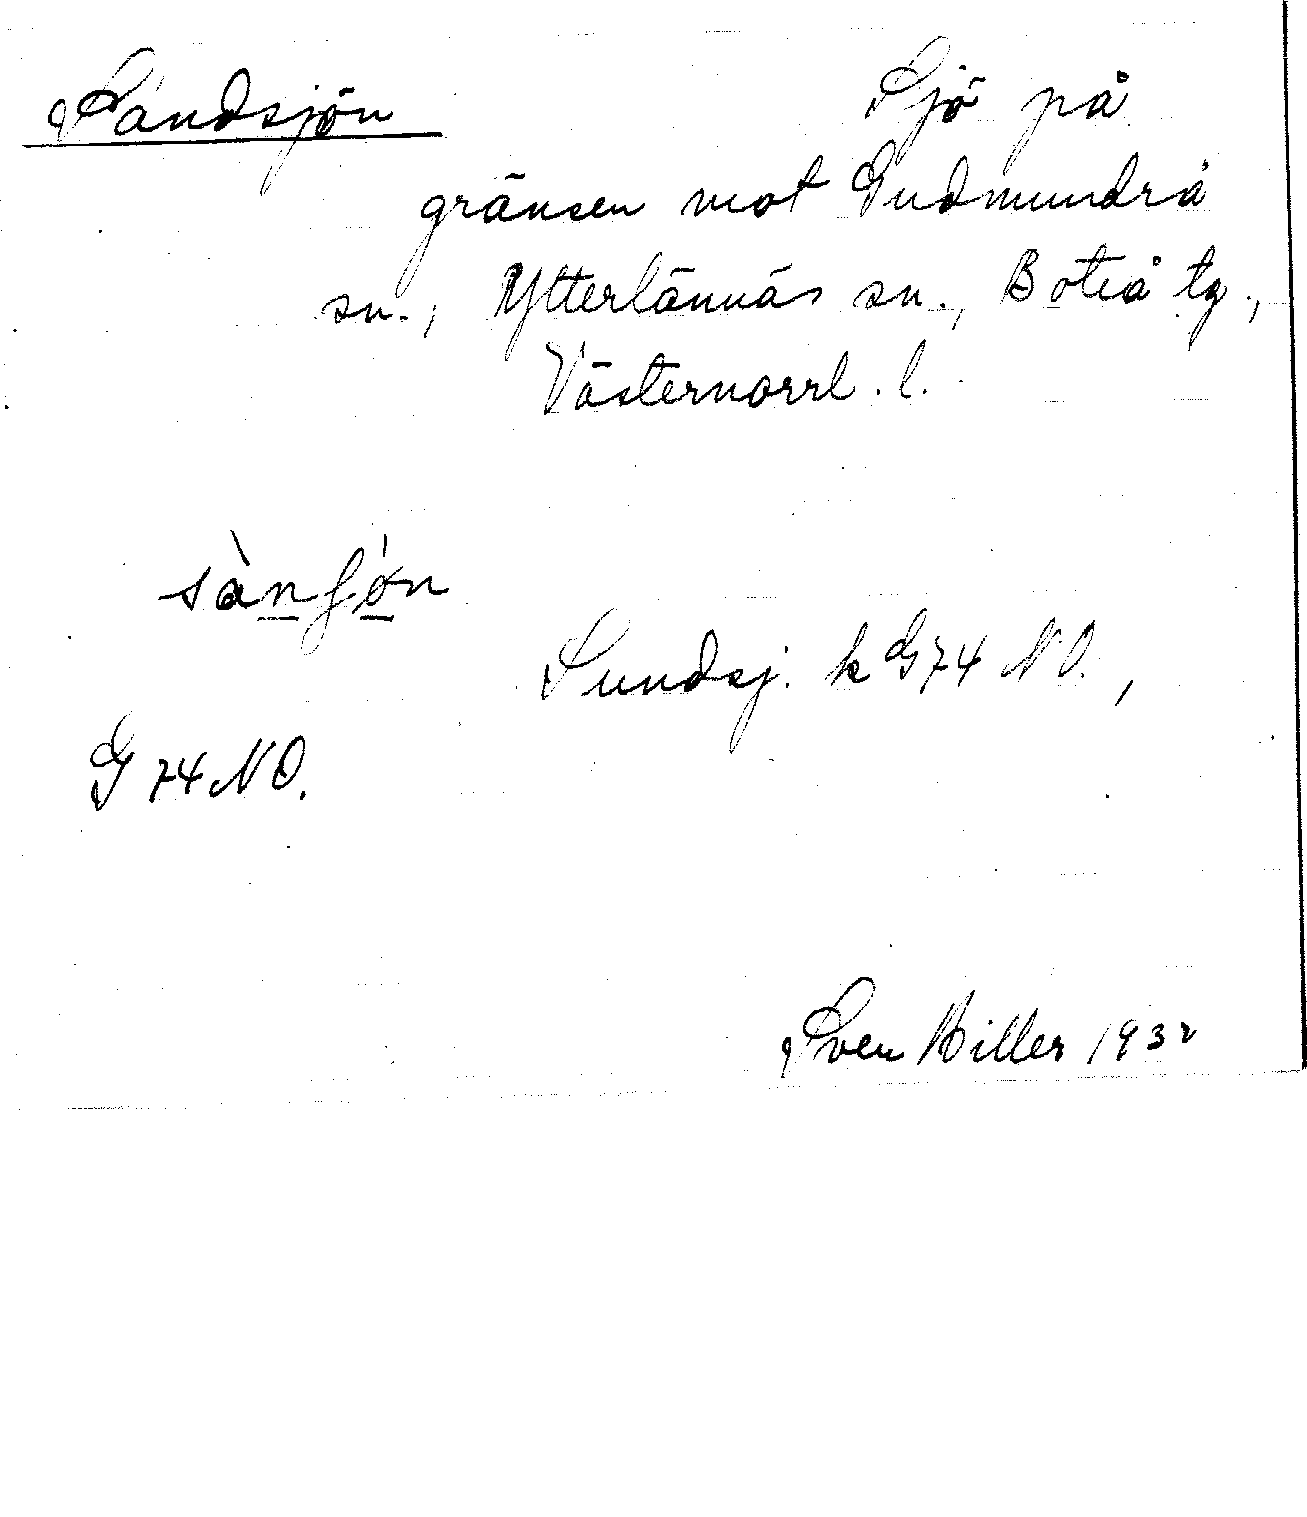 Sandsjön Sjö på
gränsen mot Gudmundrå
sn., Ytterlännäs sn., Boteå tg.,
Västernorrl. l.
sànʃø̀n
Sundsj. k G74 NO.,
G 74 NO.
Sven Hiller 1932